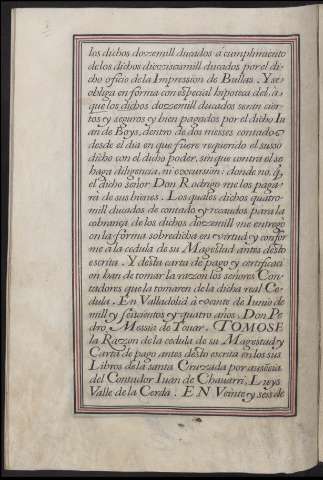 los dichos dozzemill ducados à cumplimiento
de los dichos diezziseismill ducados por el di-
cho oficio de la Impression de Bullas. Y se
obliga en forma con especial hipoteca del, à
que los dichos dozzemill ducados seran cier-
tos y seguros y bien pagados por el dicho Iu
an de Boys, dentro de dos messes contados
desde el dia en que fuere requerido el susso
dicho con el dicho poder, sin que contra el se
haga diligencia, ni excursion: donde no, q̃
el dicho señor Don Rodrigo me los paga-
ra de sus bienes. Los quales dichos quatro
mill ducados de contado, y recaudos para la
cobrança de los dichos dozzemill me entrego
en la forma sobredicha en virtud, y confor
me a la cedula de su Magestad antes desto
escrita. Y desta carta de pago y certificaci
on han de tomar la razon los señores Con-
tadores que la tomaren de la dicha real Ce-
dula. En Valladolid à veinte de Iunio de
mill y seiscientos y quatro años. Don Pe
dro Messia de Touar. TOMOSE
la Razon de la cedula de su Magestad y
Carta de pago antes desto escrita en los sus
Libros de la santa Cruzzada por ausẽcia
del Contador Iuan de Chauarri, Luys
Valle de la Cerda. EN Veinte y seis de